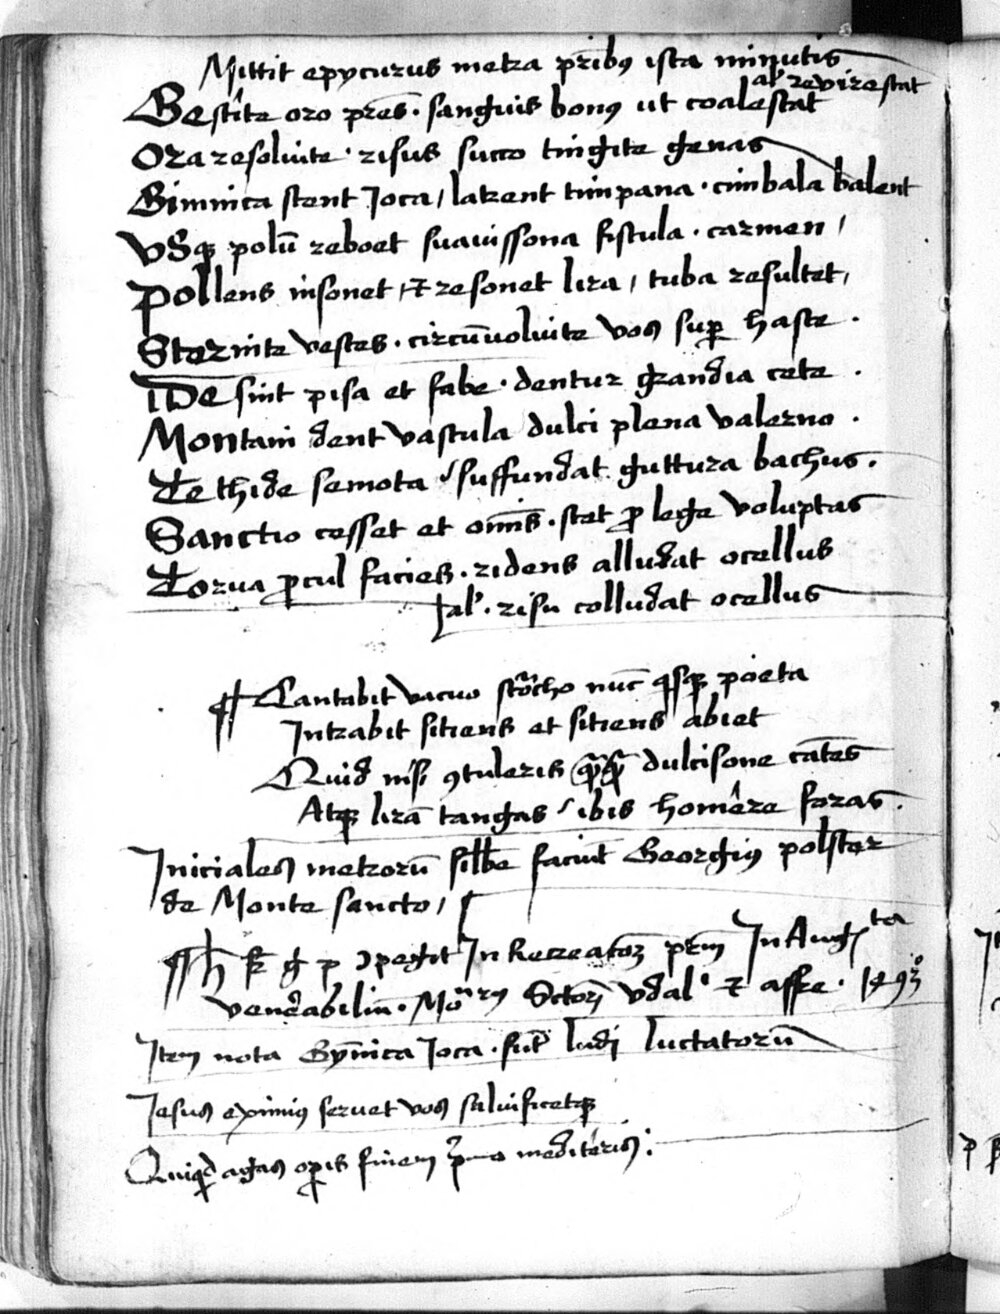 Mittit epycurus metra pr̄ibꝰ ista minutis
al' revirestat
Gestite oro pr̄es · sanguis bonꝰ ut coalestat
Ora resoluite · risus succo tingite genas
Gimnica stent Ioca / latrent timpana · cimbala balent
Usqꝫ polū reboet suauissona fistula · carmen /
Pollens insonet / ⁊ resonet lira / tuba resultet /
Sternite vestes · circūuoluite vos suꝑ haste ·
Desint pisa et fabe · dentur grandia cete ·
Montani dent vascula dulci plena valerno ·
Tethide semota / suffundat guttura bachus ·
Sanctio cesset et om̄is · stet ꝓ lege voluptas
Torua ꝓcul facies · ridens alludat ocellus
al' · risu colludat ocellus
¶ Cantabit vacuo sto͞cho nūc poeta
Intrabit sitiens et sitiens abiet
Quid nisi ꝯtuleris dulcisone cātes
Atqꝫ lirā tangas / ibis homere foras ·
Iniciales metrorū sill̄be faciūt Georgiꝰ polster
de Monte sancto /
¶ H f g p ꝯpegit In Recreatoꝝ pr̄m In Augꝰta
venerabiliū · Udal' ⁊ affre · 1493°
Item nota Gȳnica Ioca · sūt ludi luctatorū
Iesus eximiꝰ seruet vos saluificetqꝫ
Quiqͥd agas oꝑis finem pͥmo mediteris :